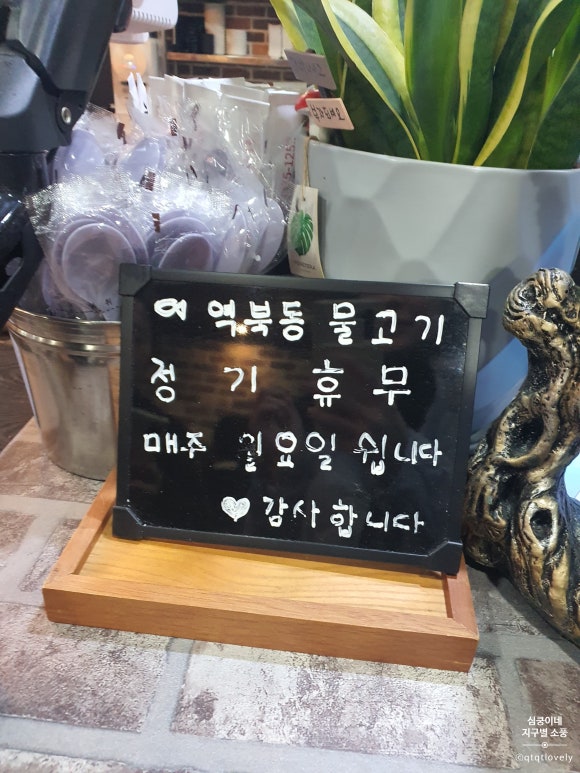 역북동 물고기
정기 휴무
매주 일요일 쉽니다
♥ 감사합니다
심궁이네
지구별 소풍
©qtqtlovely